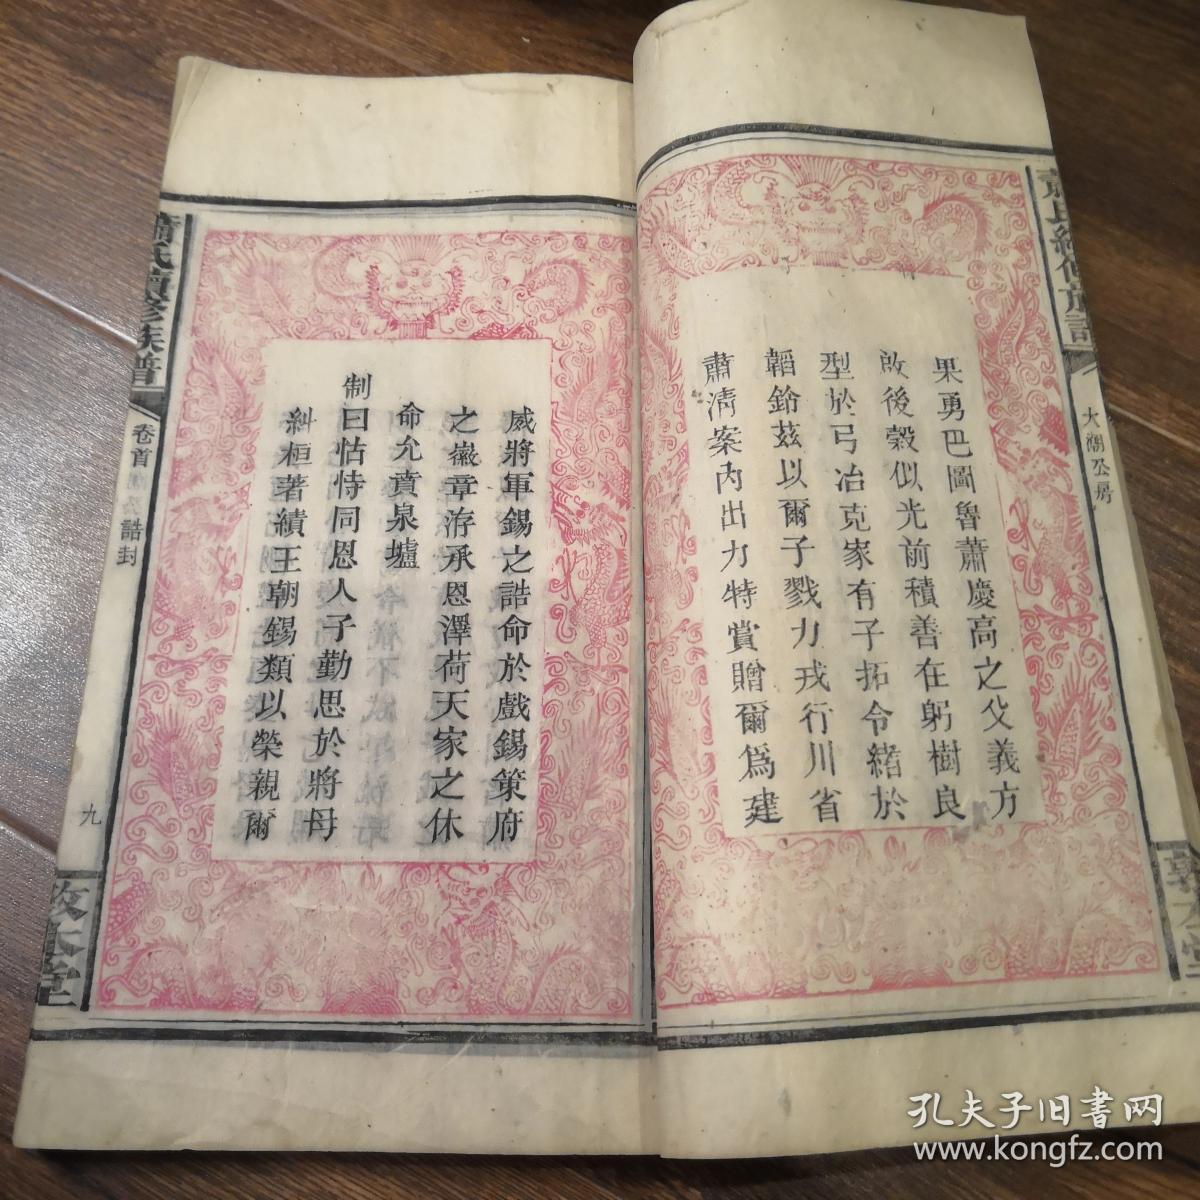 果勇巴圖魯蕭慶高之父義方
啟後穀似光前積善在躬樹良
型於弓冶克家有子拓令緒於
韜鈴茲以爾子戮力戎行川省
肅清案內出力特賞贈爾爲建
威將軍錫之誥命於戲錫策府
之徽章洊承恩澤荷天家之休
命允賁泉壚
制曰怙恃同恩人子勤思於將母
糾桓著績王朝錫類以榮親爾
蕭氏續修族譜
卷首
誥封
九
敦本堂
蕭氏續修族譜
大湖公房
敦本堂
孔夫子旧书网
www.kongfz.com